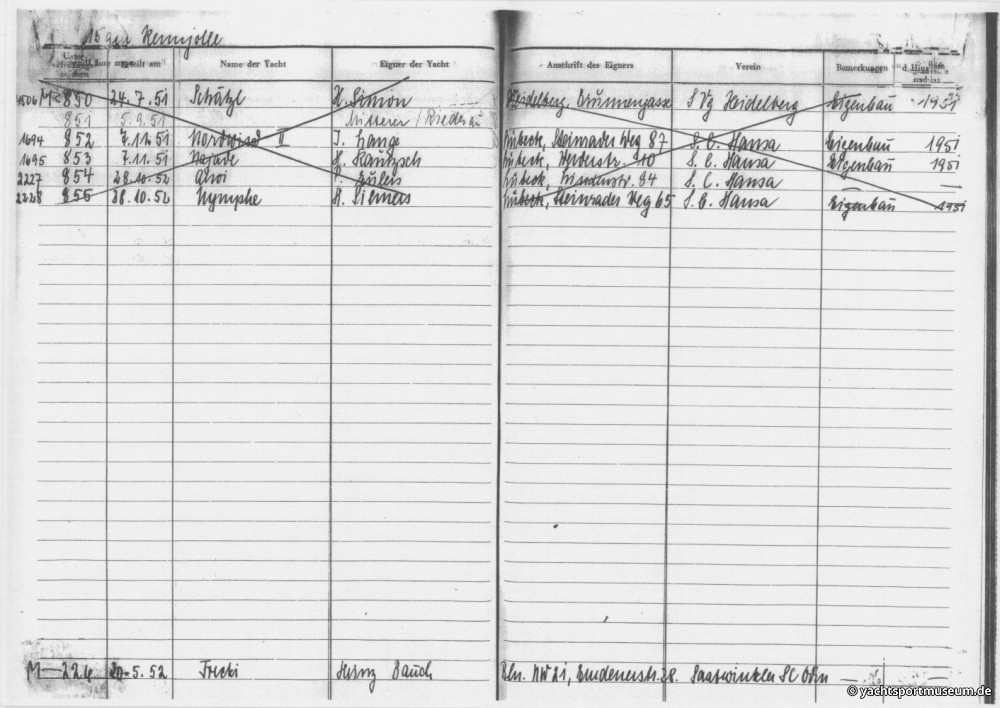 15 qm Rennjolle
Erteilt am Name der Yacht Eigner der Yacht Anschrift des Eigners Verein Bemerkungen
1506 M-850 24.7.51 Schätzl H. Simon Heidelberg, Brunnengasse S Vg Heidelberg Eigenbau 1951
851 5.9.51 Mitterer / Riederau
1694 852 7.11.51 Nordwind II J. Lange Lübeck, Steinrader Weg 87 S. C. Hansa Eigenbau 1951
1695 853 7.11.51 Najade Lübeck, 110 S. C. Hansa Eigenbau 1951
2227 854 28.10.52 Ahoi Lübeck, 84 S. C. Hansa —
2228 855 28.10.52 Nymphe H. Siemers Lübeck, Steinrader Weg 65 S. C. Hansa Eigenbau 1951
M-224 20.5.52 Heinz Bauch Bln. NW 21, Saatwinkler SC Odin
© yachtsportmuseum.de